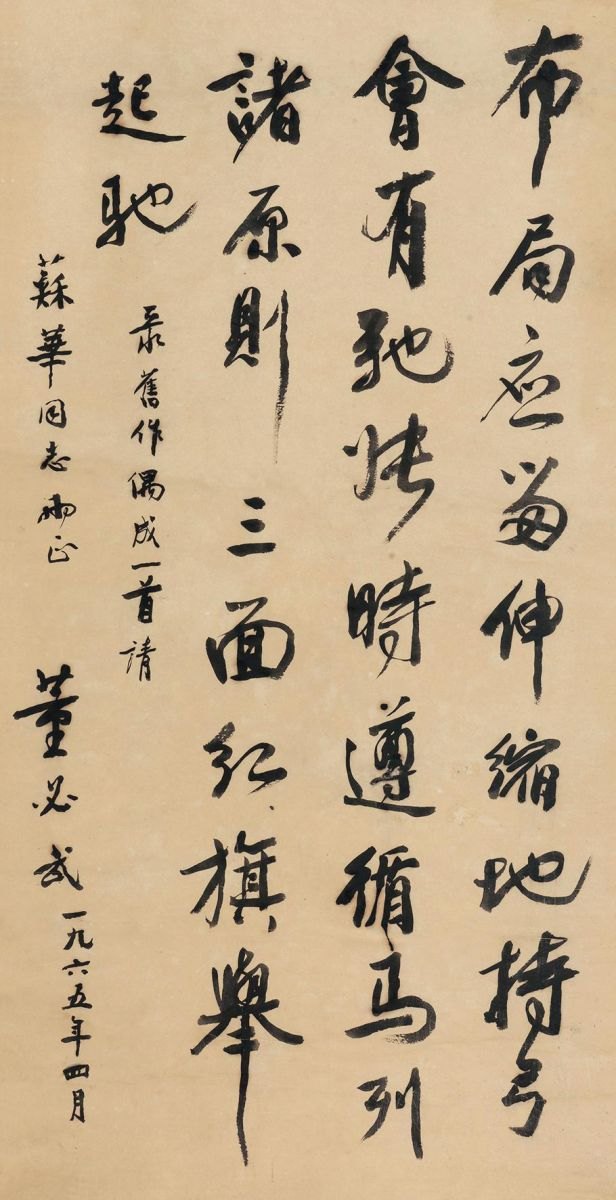 布局应留伸縮地持弓
會有弛張時遵循馬列
諸原則三面紅旗舉
起馳
录舊作偶成一首請
蘇華同志正
董必武一九六五年四月